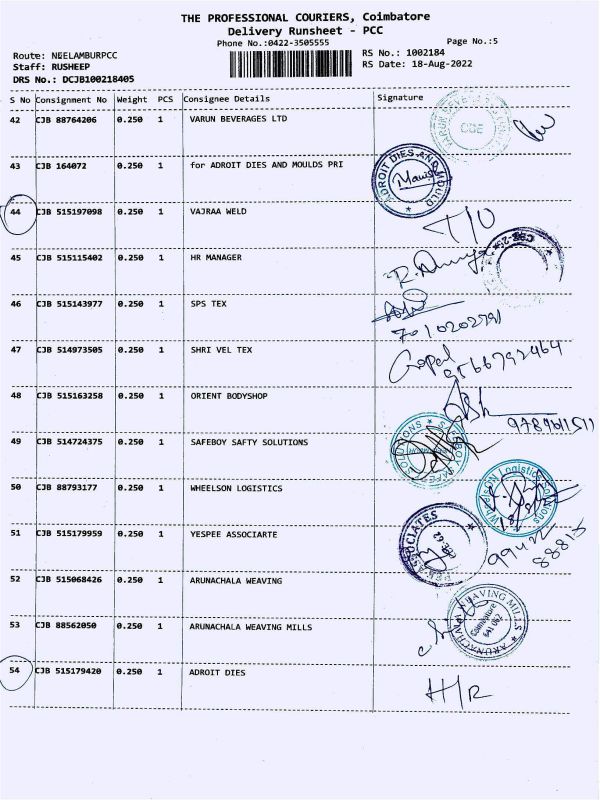 THE PROFESSIONAL COURIERS, Coimbatore
Delivery Runsheet - PCC
Phone No.:0422-3505555
Page No.:5
Route: NEELAMBURPCC
RS No.: 1002184
Staff: RUSHEEP
RS Date: 18-Aug-2022
DRS No.: DCJB100218405
S No Consignment No Weight PCS Consignee Details Signature
42 CJB 88764206 0.250 1 VARUN BEVERAGES LTD
43 CJB 164072 0.250 1 for ADROIT DIES AND MOULDS PRI ADROIT DIES AND MOULD
44 CJB 515197098 0.250 1 VAJRAA WELD
45 CJB 515115402 0.250 1 HR MANAGER
46 CJB 515143977 0.250 1 SPS TEX
47 CJB 514973505 0.250 1 SHRI VEL TEX Gopal
48 CJB 515163258 0.250 1 ORIENT BODYSHOP
49 CJB 514724375 0.250 1 SAFEBOY SAFTY SOLUTIONS
50 CJB 88793177 0.250 1 WHEELSON LOGISTICS WheelsON Logistics
51 CJB 515179959 0.250 1 YESPEE ASSOCIARTE
52 CJB 515068426 0.250 1 ARUNACHALA WEAVING
53 CJB 88562050 0.250 1 ARUNACHALA WEAVING MILLS ARUNACHALA WEAVING MILLS Coimbatore 641 062
54 CJB 515179420 0.250 1 ADROIT DIES H/R